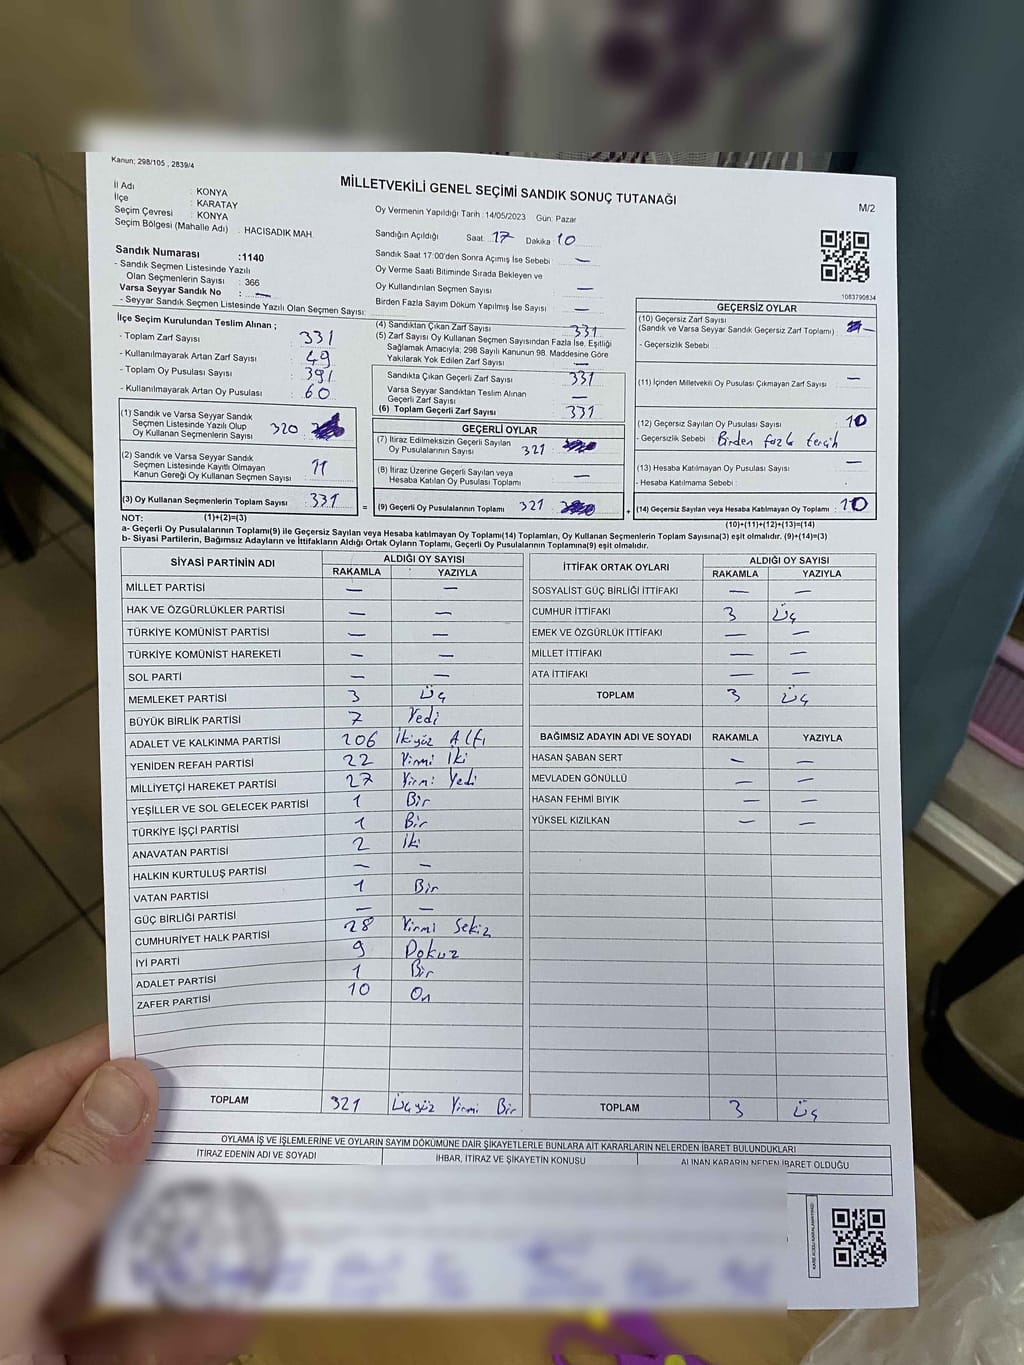 Kanun; 298/105 , 2839/4
MİLLETVEKİLİ GENEL SEÇİMİ SANDIK SONUÇ TUTANAĞI
M/2
İl Adı : KONYA
İlçe : KARATAY
Seçim Çevresi : KONYA
Seçim Bölgesi (Mahalle Adı) : HACISADIK MAH.
Oy Vermenin Yapıldığı Tarih : 14/05/2023 Gün: Pazar
Sandığın Açıldığı Saat 17 Dakika 10
Sandık Numarası :1140
- Sandık Seçmen Listesinde Yazılı
Olan Seçmenlerin Sayısı : 366
Varsa Seyyar Sandık No : —
- Seyyar Sandık Seçmen Listesinde Yazılı Olan Seçmen Sayısı:
Sandık Saat 17:00'den Sonra Açımış İse Sebebi : —
Oy Verme Saati Bitiminde Sırada Bekleyen ve
Oy Kullandırılan Seçmen Sayısı : —
Birden Fazla Sayım Döküm Yapılmış İse Sayısı : —
1083790834
İlçe Seçim Kurulundan Teslim Alınan ;
- Toplam Zarf Sayısı : 331
- Kullanılmayarak Artan Zarf Sayısı : 49
- Toplam Oy Pusulası Sayısı : 391
- Kullanılmayarak Artan Oy Pusulası : 60
(1) Sandık ve Varsa Seyyar Sandık
Seçmen Listesinde Yazılı Olup
Oy Kullanan Seçmenlerin Sayısı 320
(2) Sandık ve Varsa Seyyar Sandık
Seçmen Listesinde Kayıtlı Olmayan
Kanun Gereği Oy Kullanan Seçmen Sayısı : 11
(3) Oy Kullanan Seçmenlerin Toplam Sayısı : 331
(1)+(2)=(3)
(4) Sandıktan Çıkan Zarf Sayısı : 331
(5) Zarf Sayısı Oy Kullanan Seçmen Sayısından Fazla İse, Eşitliği
Sağlamak Amacıyla; 298 Sayılı Kanunun 98. Maddesine Göre
Yakılarak Yok Edilen Zarf Sayısı : —
Sandıkta Çıkan Geçerli Zarf Sayısı : 331
Varsa Seyyar Sandıktan Teslim Alınan
Geçerli Zarf Sayısı : —
(6) Toplam Geçerli Zarf Sayısı : 331
GEÇERLİ OYLAR
(7) İtiraz Edilmeksizin Geçerli Sayılan
Oy Pusulalarının Sayısı : 321
(8) İtiraz Üzerine Geçerli Sayılan veya
Hesaba Katılan Oy Pusulası Toplamı : —
= (9) Geçerli Oy Pusulalarının Toplamı : 321
GEÇERSİZ OYLAR
(10) Geçersiz Zarf Sayısı
(Sandık ve Varsa Seyyar Sandık Geçersiz Zarf Toplamı) : —
- Geçersizlik Sebebi :
(11) İçinden Milletvekili Oy Pusulası Çıkmayan Zarf Sayısı : —
(12) Geçersiz Sayılan Oy Pusulası Sayısı : 10
- Geçersizlik Sebebi : Birden fazla tercih
(13) Hesaba Katılmayan Oy Pusulası Sayısı : —
- Hesaba Katılmama Sebebi :
+ (14) Geçersiz Sayılan veya Hesaba Katılmayan Oy Toplamı : 10
(10)+(11)+(12)+(13)=(14)
NOT:
a- Geçerli Oy Pusulalarının Toplamı(9) ile Geçersiz Sayılan veya Hesaba katılmayan Oy Toplamı(14) Toplamları, Oy Kullanan Seçmenlerin Toplam Sayısına(3) eşit olmalıdır. (9)+(14)=(3)
b- Siyasi Partilerin, Bağımsız Adayların ve İttifakların Aldığı Ortak Oyların Toplamı, Geçerli Oy Pusulalarının Toplamına(9) eşit olmalıdır.
SİYASİ PARTİNİN ADI ALDIĞI OY SAYISI
RAKAMLA YAZIYLA
MİLLET PARTİSİ — —
HAK VE ÖZGÜRLÜKLER PARTİSİ — —
TÜRKİYE KOMÜNİST PARTİSİ — —
TÜRKİYE KOMÜNİST HAREKETİ — —
SOL PARTİ — —
MEMLEKET PARTİSİ 3 Üç
BÜYÜK BİRLİK PARTİSİ 7 Yedi
ADALET VE KALKINMA PARTİSİ 206 İkiyüz Altı
YENİDEN REFAH PARTİSİ 22 Yirmi İki
MİLLİYETÇİ HAREKET PARTİSİ 27 Yirmi Yedi
YEŞİLLER VE SOL GELECEK PARTİSİ 1 Bir
TÜRKİYE İŞÇİ PARTİSİ 1 Bir
ANAVATAN PARTİSİ 2 İki
HALKIN KURTULUŞ PARTİSİ — —
VATAN PARTİSİ 1 Bir
GÜÇ BİRLİĞİ PARTİSİ — —
CUMHURİYET HALK PARTİSİ 28 Yirmi Sekiz
İYİ PARTİ 9 Dokuz
ADALET PARTİSİ 1 Bir
ZAFER PARTİSİ 10 On
TOPLAM 321 Üçyüz Yirmi Bir
İTTİFAK ORTAK OYLARI ALDIĞI OY SAYISI
RAKAMLA YAZIYLA
SOSYALİST GÜÇ BİRLİĞİ İTTİFAKI — —
CUMHUR İTTİFAKI 3 Üç
EMEK VE ÖZGÜRLÜK İTTİFAKI — —
MİLLET İTTİFAKI — —
ATA İTTİFAKI — —
TOPLAM 3 Üç
BAĞIMSIZ ADAYIN ADI VE SOYADI RAKAMLA YAZIYLA
HASAN ŞABAN SERT — —
MEVLADEN GÖNÜLLÜ — —
HASAN FEHMİ BIYIK — —
YÜKSEL KIZILKAN — —
TOPLAM 3 Üç
OYLAMA İŞ VE İŞLEMLERİNE VE OYLARIN SAYIM DÖKÜMÜNE DAİR ŞİKAYETLERLE BUNLARA AİT KARARLARIN NELERDEN İBARET BULUNDUKLARI
İTİRAZ EDENİN ADI VE SOYADI İHBAR, İTİRAZ VE ŞİKAYETİN KONUSU ALINAN KARARIN NEDEN İBARET OLDUĞU